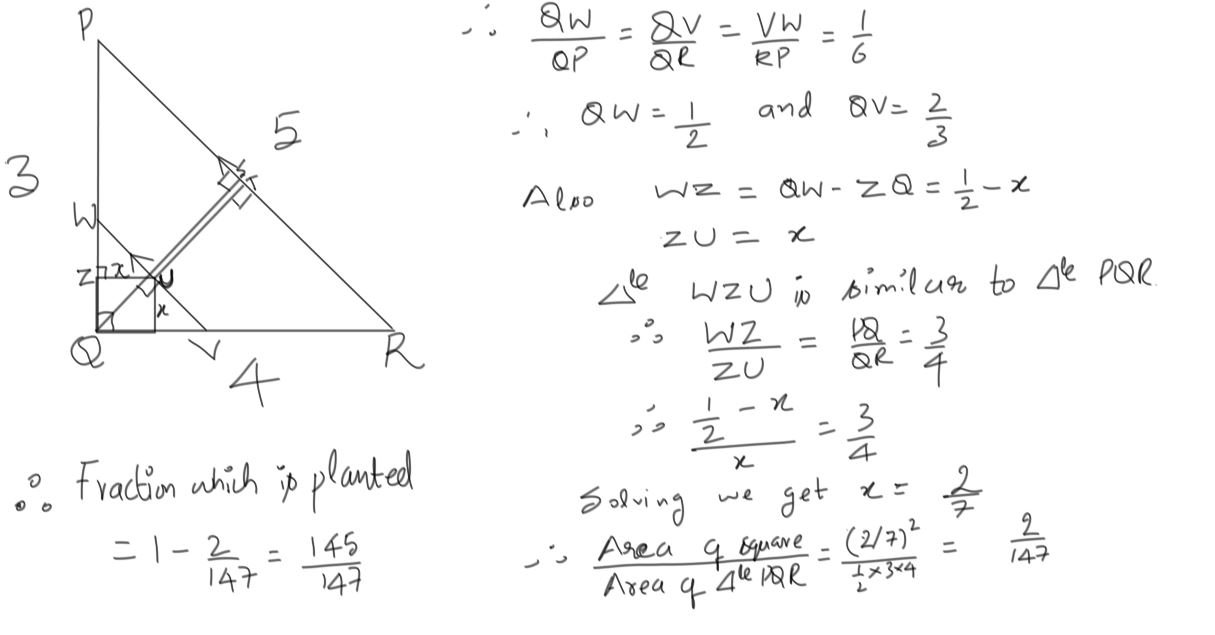 P
3
5
S
T
W
Z
x
U
x
Q
V
R
4
∴ QW/QP = QV/QR = VW/RP = 1/6
∴ QW = 1/2 and QV = 2/3
Also WZ = QW - ZQ = 1/2 - x
ZU = x
Δle WZU is similar to Δle PQR.
∴ WZ/ZU = PQ/QR = 3/4
∴ (1/2 - x)/x = 3/4
Solving we get x = 2/7
∴ Area of square/Area of Δle PQR = (2/7)²/(1/2 × 3 × 4) = 2/147
∴ Fraction which is planted
= 1 - 2/147 = 145/147